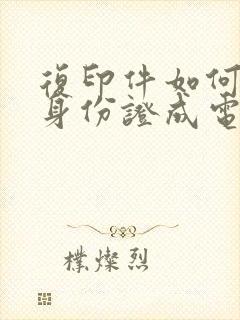 復印件如何
身份證成電
樸燦烈